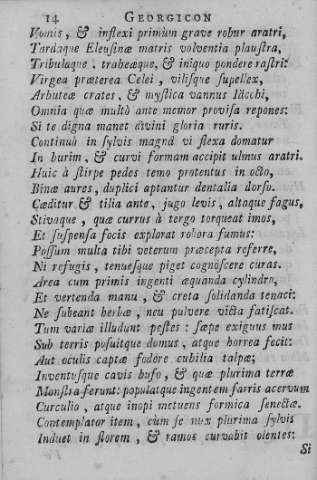 14 GEORGICON
Vomis, & inflexi primùm grave robur aratri,
Tardaque Eleusinæ matris volventia plaustra,
Tribulaque, trabeæque, & iniquo pondere rastri:
Virgea præterea Celei, vilisque supellex,
Arbuteæ crates, & mystica vannus Iäcchi,
Omnia quæ multò ante memor provisa repones:
Si te digna manet divini gloria ruris.
Continuò in sylvis magnâ vi flexa domatur
In burim, & curvi formam accipit ulmus aratri.
Huic à stirpe pedes temo protentus in octo,
Binæ aures, duplici aptantur dentalia dorso.
Cæditur & tilia ante, jugo levis, altaque fagus,
Stivaque, quæ currus à tergo torqueat imos,
Et suspensa focis explorat robora fumus:
Possum multa tibi veterum præcepta referre,
Ni refugis, tenuesque piget cognoscere curas.
Area cum primis ingenti æquanda cylindro,
Et vertenda manu, & creta solidanda tenaci:
Ne subeant herbæ, neu pulvere victa fatiscat.
Tum variæ illudunt pestes: sæpe exiguus mus
Sub terris posuitque domus, atque horrea fecit:
Aut oculis captæ fodêre cubilia talpæ;
Inventusque cavis bufo, & quæ plurima terræ
Monstra ferunt: populatque ingentem farris acervum
Curculio, atque inopi metuens formica senectæ.
Contemplator item, cùm se nux plurima sylvis
Induet in florem, & ramos curvabit olentes:
Si